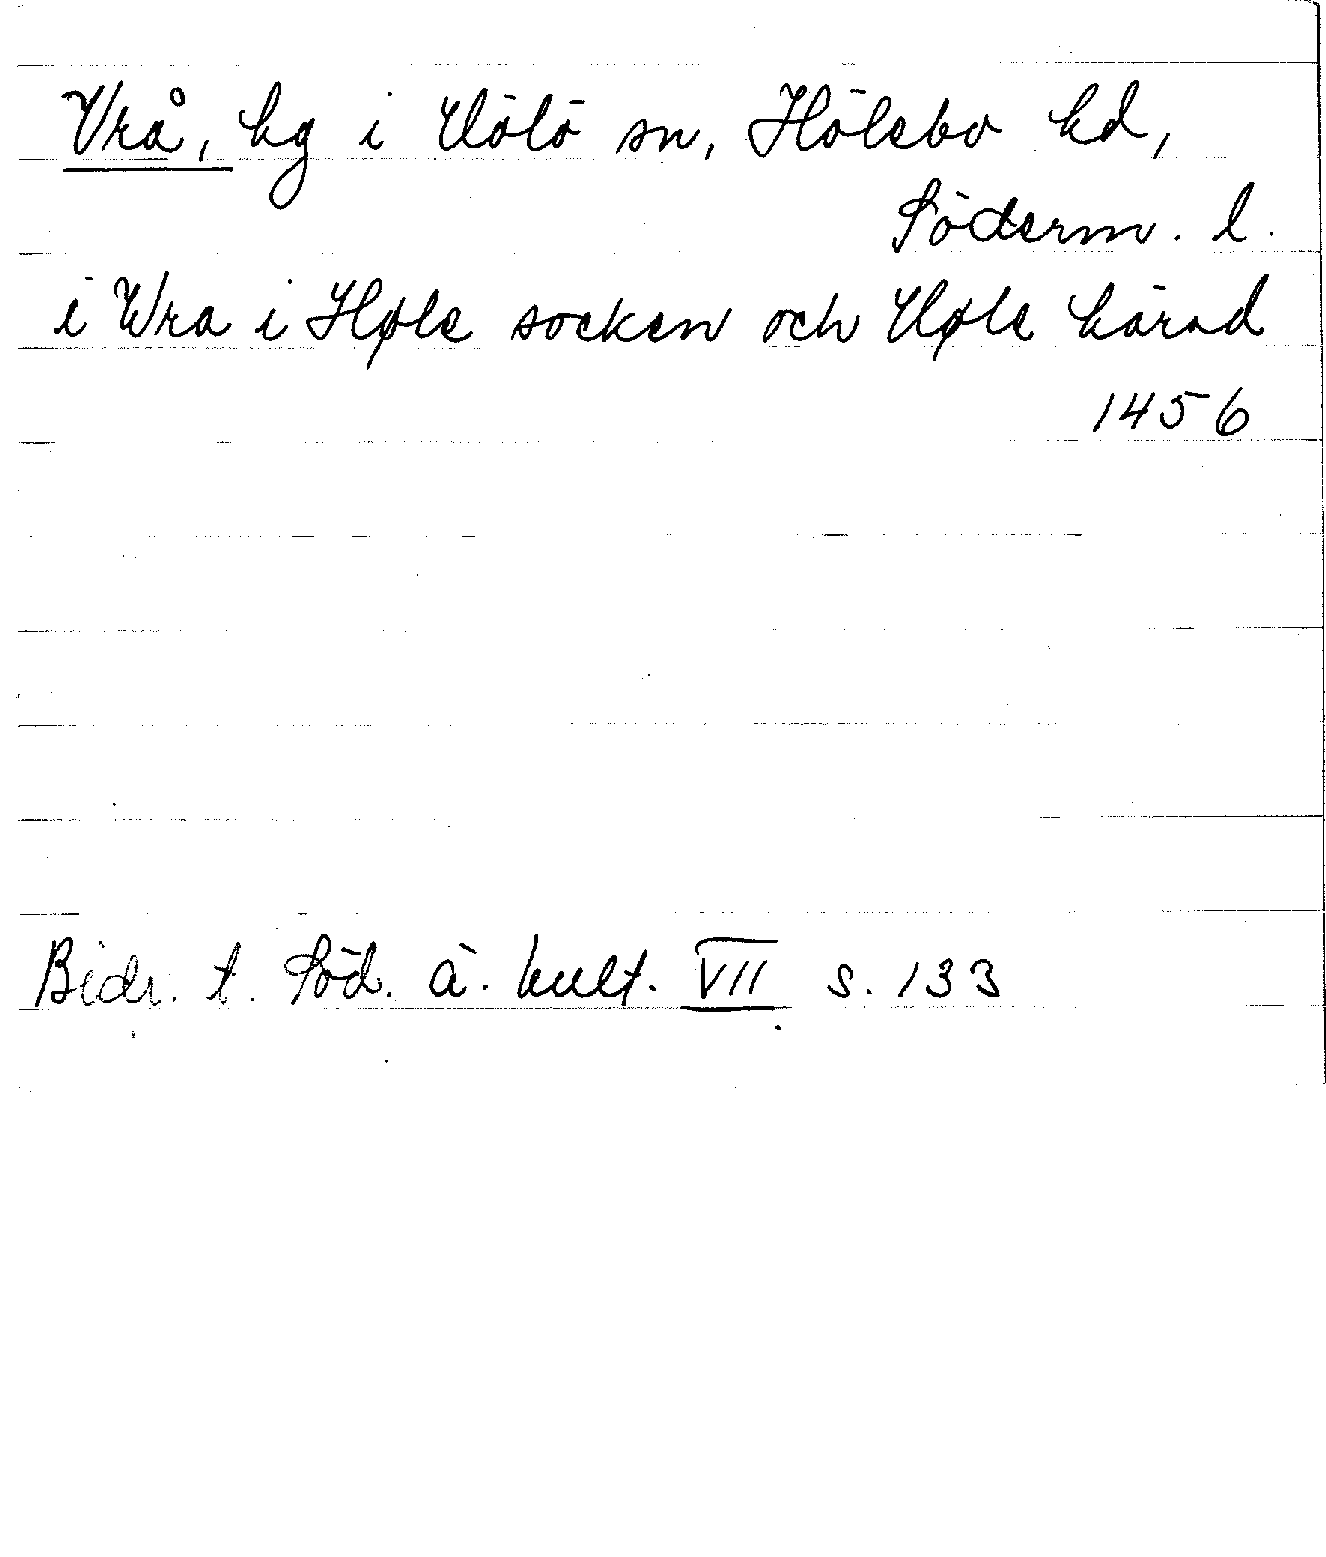 Vrå, hg i Hölö sn, Hölebo hd,
Söderm. l.
i Wra i Høle socken och Høle härad
1456
Bidr. t. Söd. ä. kult. VII s. 133